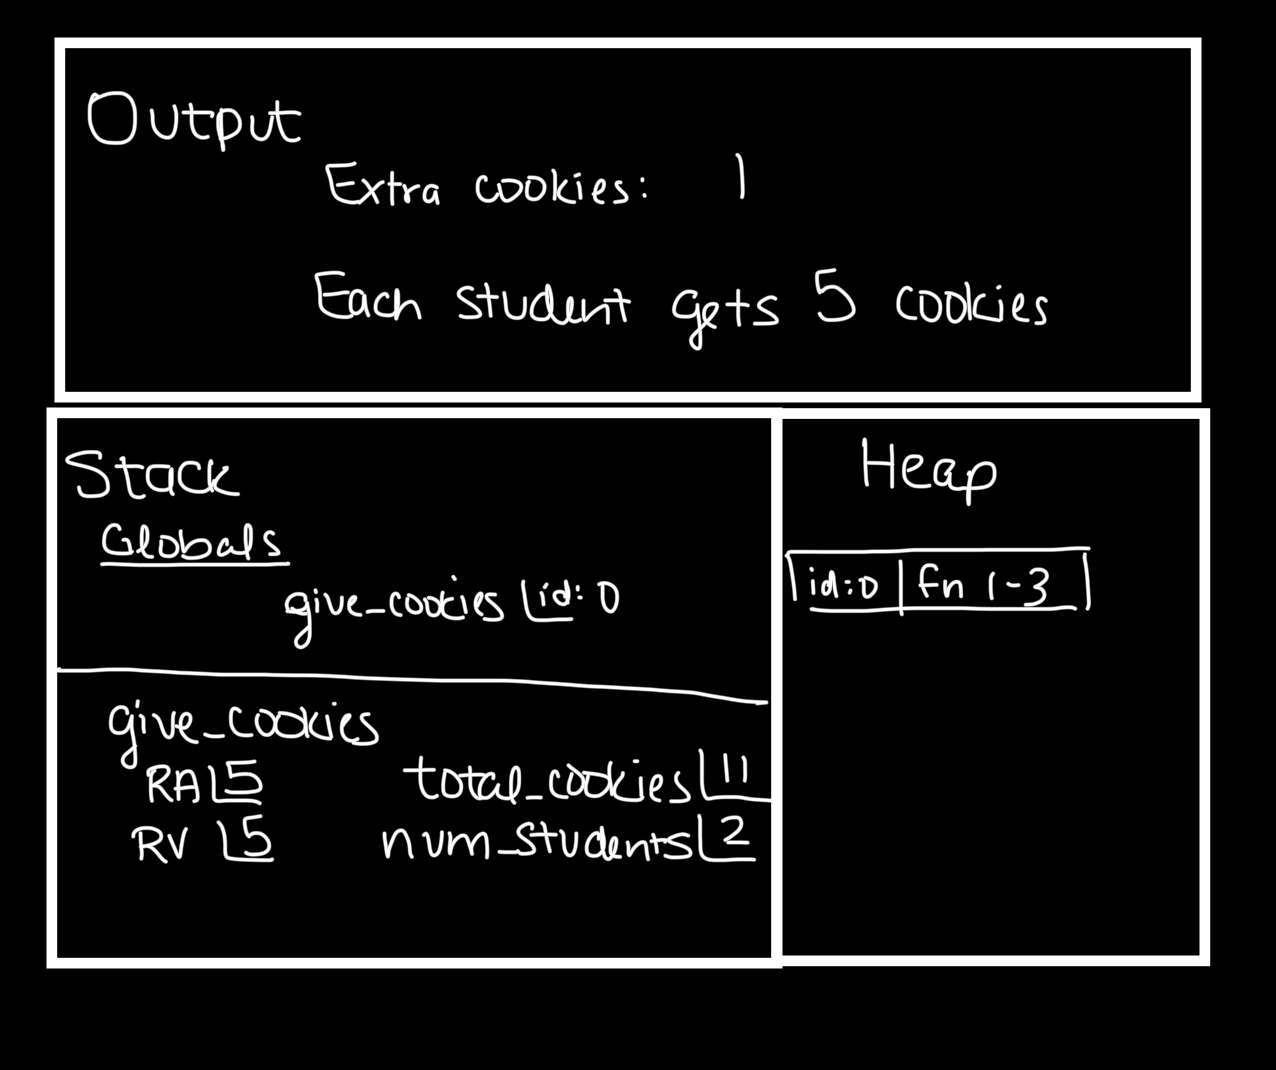 Output
Extra cookies: 1
Each student gets 5 cookies
Stack
Globals
give_cookies id: 0
give_cookies
RA 5 total_cookies 11
RV 5 num_students 2
Heap
id:0 fn 1-3